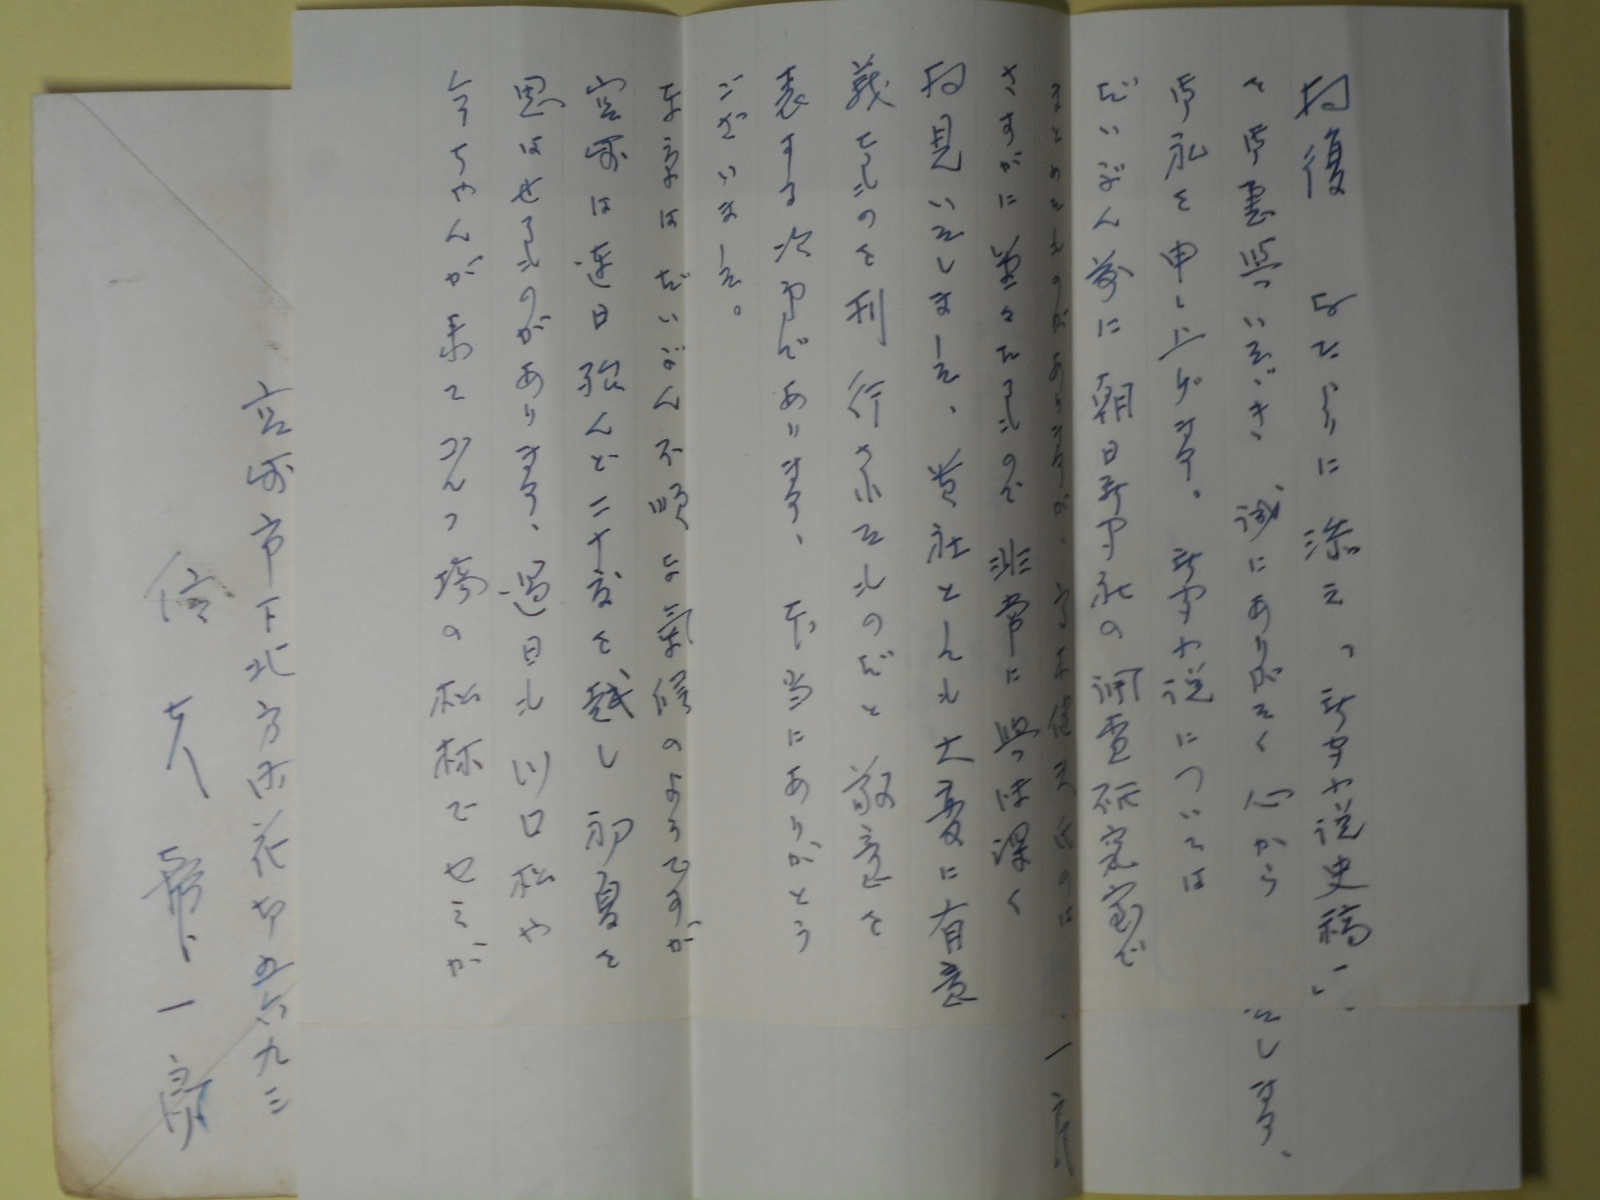 拝復 おたよりに添え、「新聞小説史稿」
を御恵与いただき、誠にありがたく心から
御礼を申し上げます。新聞小説については
だいぶん前に朝日新聞社の調査研究室で
まとめたものがありますが、高木健夫氏のは
さすがに堂々たるもので非常に興味深く
拝見いたしました、貴社としても大変に有意
義なものを刊行されたものだと敬意を
表する次第であります、本当にありがとう
ございました。
東京はだいぶん不順な気候のようですが
宮崎は連日殆んど二十度を越し初夏を
思はせるものがあります、過日も川口松や
今ちやんが来て一ツ葉の松林でせみが
たします、
一良
宮崎市下北方町花切五六九三
信夫韓一郎